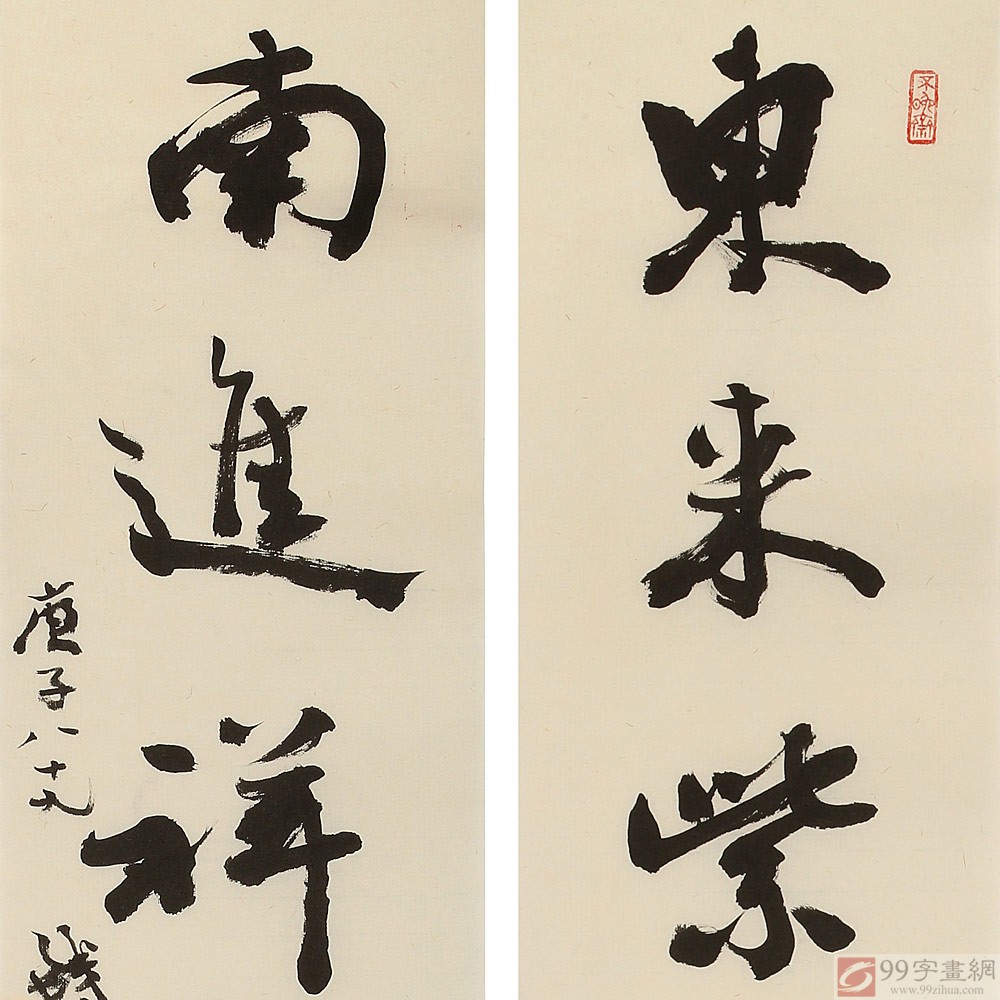 東来紫
南進祥
庚子八十九
99字畫網
www.99zihua.com